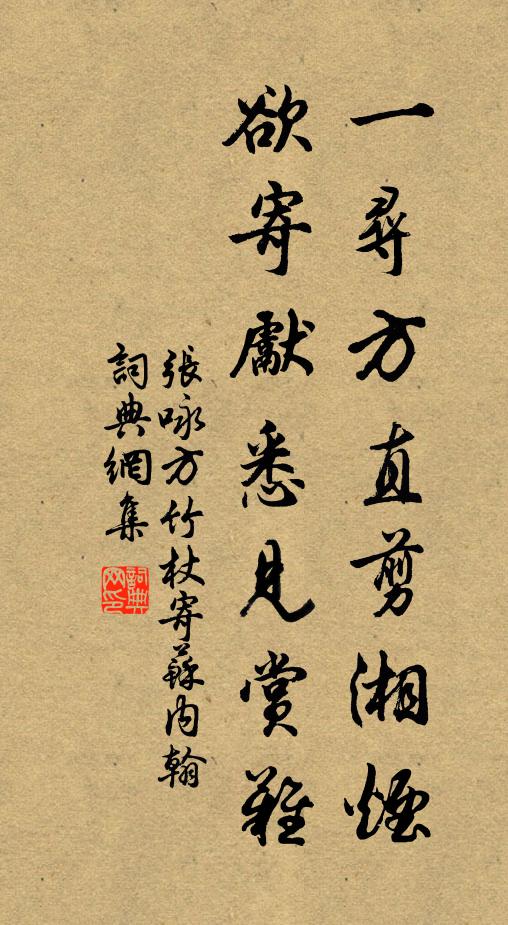 一尋方直剪湘煙
欲寄獻悉見賞難
張咏方竹杖寄蘇内翰
詞典網集
詞典
网印